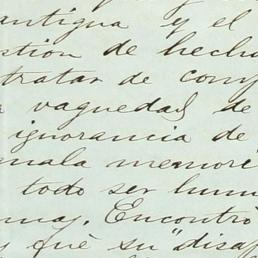 antigua y el
stion de hecho
tratar de com
vaguedad de
ignorancia de
mala memori
todo ser hum
mas. Encontró
y qué su "disa